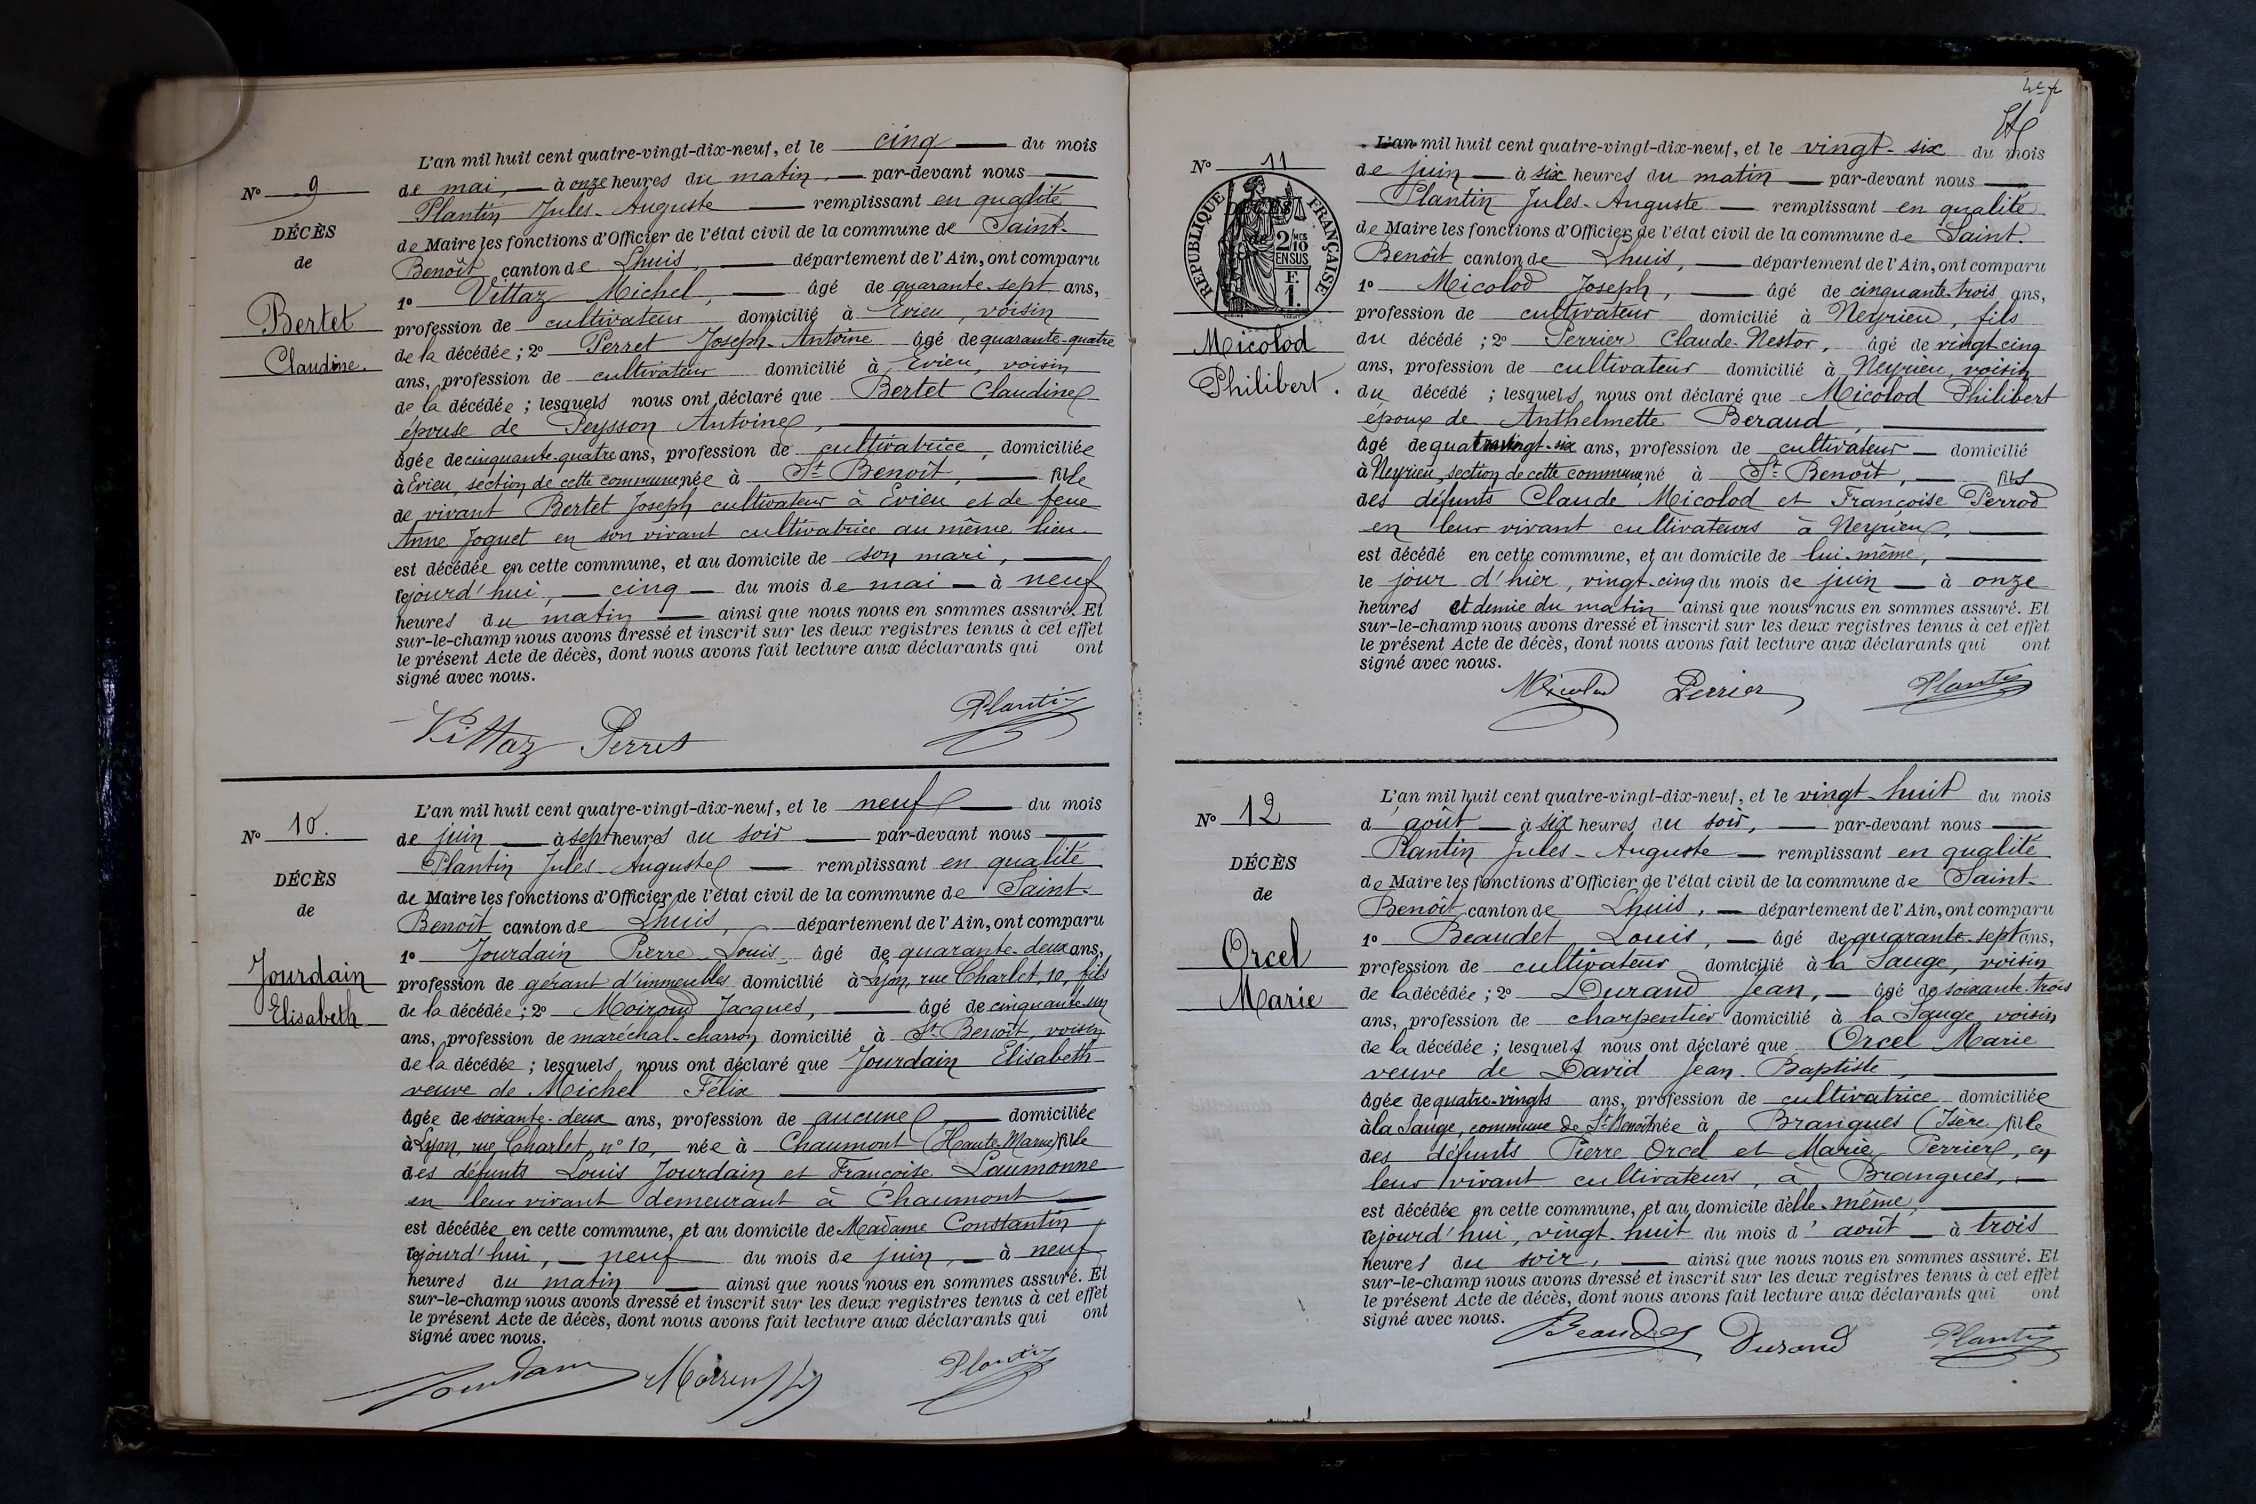 L'an mil huit cent quatre-vingt-dix-neuf, et le cinq du mois
No 9
de mai, à onze heures du matin, par-devant nous
Plantin Jules-Auguste remplissant en qualité
DÉCÈS
de Maire les fonctions d'Officier de l'état civil de la commune de Saint-
de
Benoît canton de Lhuis, département de l'Ain, ont comparu
1o Vittaz Michel, âgé de quarante-sept ans,
Bertet
profession de cultivateur domicilié à Evieu, voisin
de la décédée ; 2o Perret Joseph-Antoine âgé de quarante-quatre
Claudine.
ans, profession de cultivateur domicilié à Evieu, voisin
de la décédée ; lesquels nous ont déclaré que Bertet Claudine
épouse de Peysson Antoine,
âgée de cinquante-quatre ans, profession de cultivatrice, domiciliée
à Evieu, section de cette commune née à St Benoît, fille
de vivant Bertet Joseph cultivateur à Evieu et de feue
Anne Joguet en son vivant cultivatrice au même lieu
est décédée en cette commune, et au domicile de son mari,
cejourd'hui, cinq du mois de mai à neuf
heures du matin ainsi que nous nous en sommes assuré. Et
sur-le-champ nous avons dressé et inscrit sur les deux registres tenus à cet effet
le présent Acte de décès, dont nous avons fait lecture aux déclarants qui ont
signé avec nous.
Vittaz Perret Plantin
L'an mil huit cent quatre-vingt-dix-neuf, et le neuf du mois
No 10.
de juin à sept heures du soir par-devant nous
Plantin Jules-Auguste remplissant en qualité
DÉCÈS
de Maire les fonctions d'Officier de l'état civil de la commune de Saint-
de
Benoît canton de Lhuis, département de l'Ain, ont comparu
1o Jourdain Pierre-Louis âgé de quarante-deux ans,
Jourdain
profession de gérant d'immeubles domicilié à Lyon, rue Charlet, 10, fils
Elisabeth
de la décédée ; 2o Moiroud Jacques, âgé de cinquante-un
ans, profession de maréchal-charron domicilié à St Benoît, voisin
de la décédée ; lesquels nous ont déclaré que Jourdain Elisabeth
veuve de Michel Félix
âgée de soixante-deux ans, profession de aucune domiciliée
à Lyon, rue Charlet, no 10, née à Chaumont (Haute-Marne) fille
des défunts Louis Jourdain et Françoise Laumonne
en leur vivant demeurant à Chaumont
est décédée en cette commune, et au domicile de Madame Constantin,
cejourd'hui, neuf du mois de juin, à neuf
heures du matin ainsi que nous nous en sommes assuré. Et
sur-le-champ nous avons dressé et inscrit sur les deux registres tenus à cet effet
le présent Acte de décès, dont nous avons fait lecture aux déclarants qui ont
signé avec nous.
Jourdain Plantin
L'an mil huit cent quatre-vingt-dix-neuf, et le vingt-six du mois
No 11
de juin à six heures du matin par-devant nous
Plantin Jules-Auguste remplissant en qualité
RÉPUBLIQUE FRANÇAISE
2/10 EN SUS
F. 1.
de Maire les fonctions d'Officier de l'état civil de la commune de Saint-
Benoît canton de Lhuis, département de l'Ain, ont comparu
1o Micolod Joseph, âgé de cinquante-trois ans,
profession de cultivateur domicilié à Neyrieu, fils
Micolod
du décédé ; 2o Perrier Claude-Nestor, âgé de vingt-cinq
Philibert.
ans, profession de cultivateur domicilié à Neyrieu, voisin
du décédé ; lesquels nous ont déclaré que Micolod Philibert
époux de Anthelmette Beraud,
âgé de quatre-vingt-six ans, profession de cultivateur domicilié
à Neyrieu, section de cette commune né à St Benoît, fils
des défunts Claude Micolod et Françoise Perrod
en leur vivant cultivateurs à Neyrieu,
est décédé en cette commune, et au domicile de lui-même,
le jour d'hier, vingt-cinq du mois de juin à onze
heures et demie du matin ainsi que nous nous en sommes assuré. Et
sur-le-champ nous avons dressé et inscrit sur les deux registres tenus à cet effet
le présent Acte de décès, dont nous avons fait lecture aux déclarants qui ont
signé avec nous.
Micolod Perrier Plantin
L'an mil huit cent quatre-vingt-dix-neuf, et le vingt-huit du mois
No 12
d'août à six heures du soir, par-devant nous
Plantin Jules-Auguste remplissant en qualité
DÉCÈS
de Maire les fonctions d'Officier de l'état civil de la commune de Saint-
de
Benoît canton de Lhuis, département de l'Ain, ont comparu
1o Beaudet Louis, âgé de quarante-sept ans,
Orcel
profession de cultivateur domicilié à la Sauge, voisin
Marie
de la décédée ; 2o Durand Jean, âgé de soixante-trois
ans, profession de charpentier domicilié à la Sauge, voisin
de la décédée ; lesquels nous ont déclaré que Orcel Marie
veuve de David Jean-Baptiste,
âgée de quatre-vingts ans, profession de cultivatrice domiciliée
à la Sauge, commune de St-Benoît née à Brangues (Isère) fille
des défunts Pierre Orcel et Marie Perrier, en
leur vivant cultivateurs, à Brangues,
est décédée en cette commune, et au domicile d'elle-même,
cejourd'hui, vingt-huit du mois d'août à trois
heures du soir, ainsi que nous nous en sommes assuré. Et
sur-le-champ nous avons dressé et inscrit sur les deux registres tenus à cet effet
le présent Acte de décès, dont nous avons fait lecture aux déclarants qui ont
signé avec nous.
Beaudet Durand Plantin